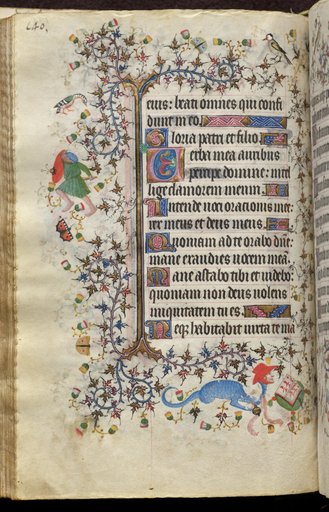 eius: beati omnes qui confi
dunt in eo.
Gloria patri et filio
Verba mea auribus
percipe domine: intel
lige clamorem meum.
Intende voci orationis me
rex meus et deus meus.
Quoniam ad te orabo dne:
mane exaudies vocem mea.
Mane astabo tibi et videbo:
quoniam non deus volens
iniquitatem tu es.
Neqz habitabit iuxta te ma